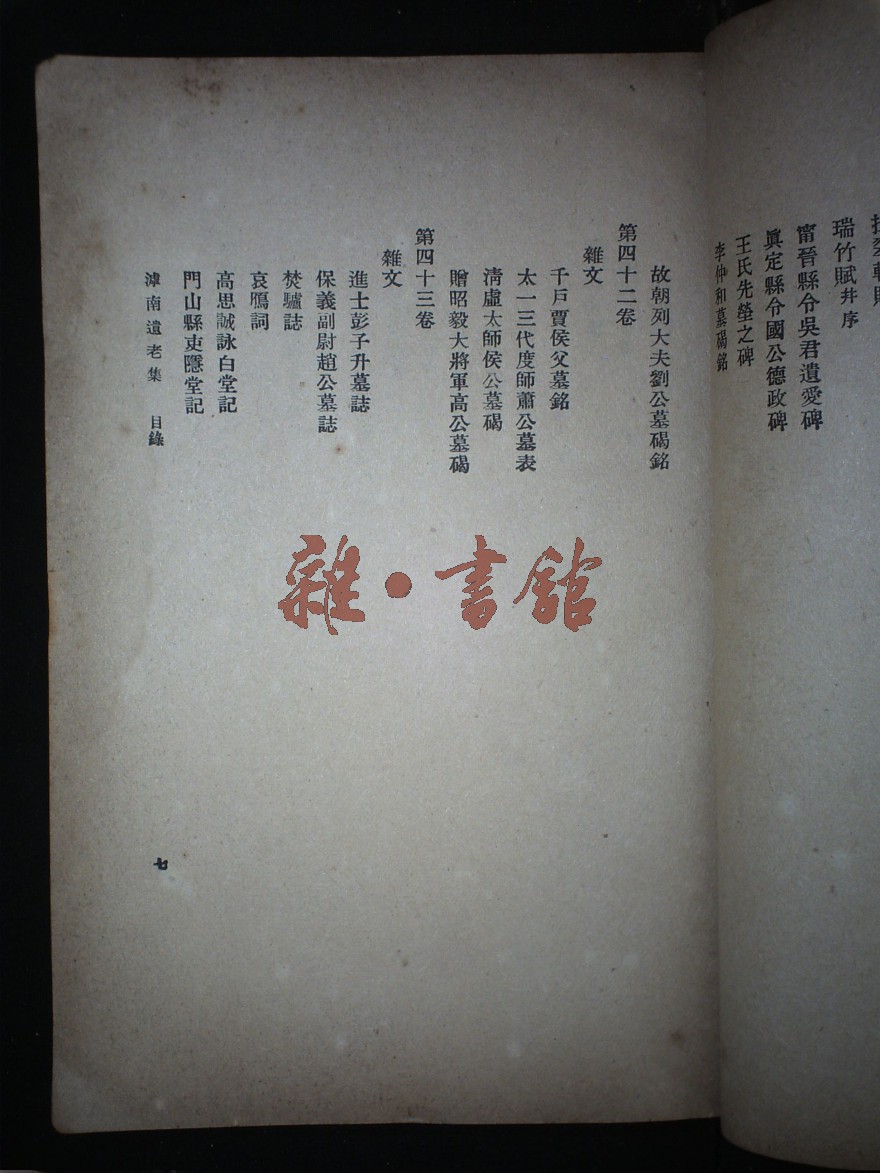 瑞竹賦并序
甯晉縣令吳君遺愛碑
眞定縣令國公德政碑
王氏先塋之碑
李仲和墓碣銘
故朝列大夫劉公墓碣銘
第四十二卷
雜文
千戶賈侯父墓銘
太一三代度師蕭公墓表
清虛大師侯公墓碣
贈昭毅大將軍高公墓碣
第四十三卷
雜文
進士彭子升墓誌
保義副尉趙公墓誌
焚驢誌
哀鴈詞
高思誠詠白堂記
門山縣吏隱堂記
滹南遺老集 目錄
七
雜·書館